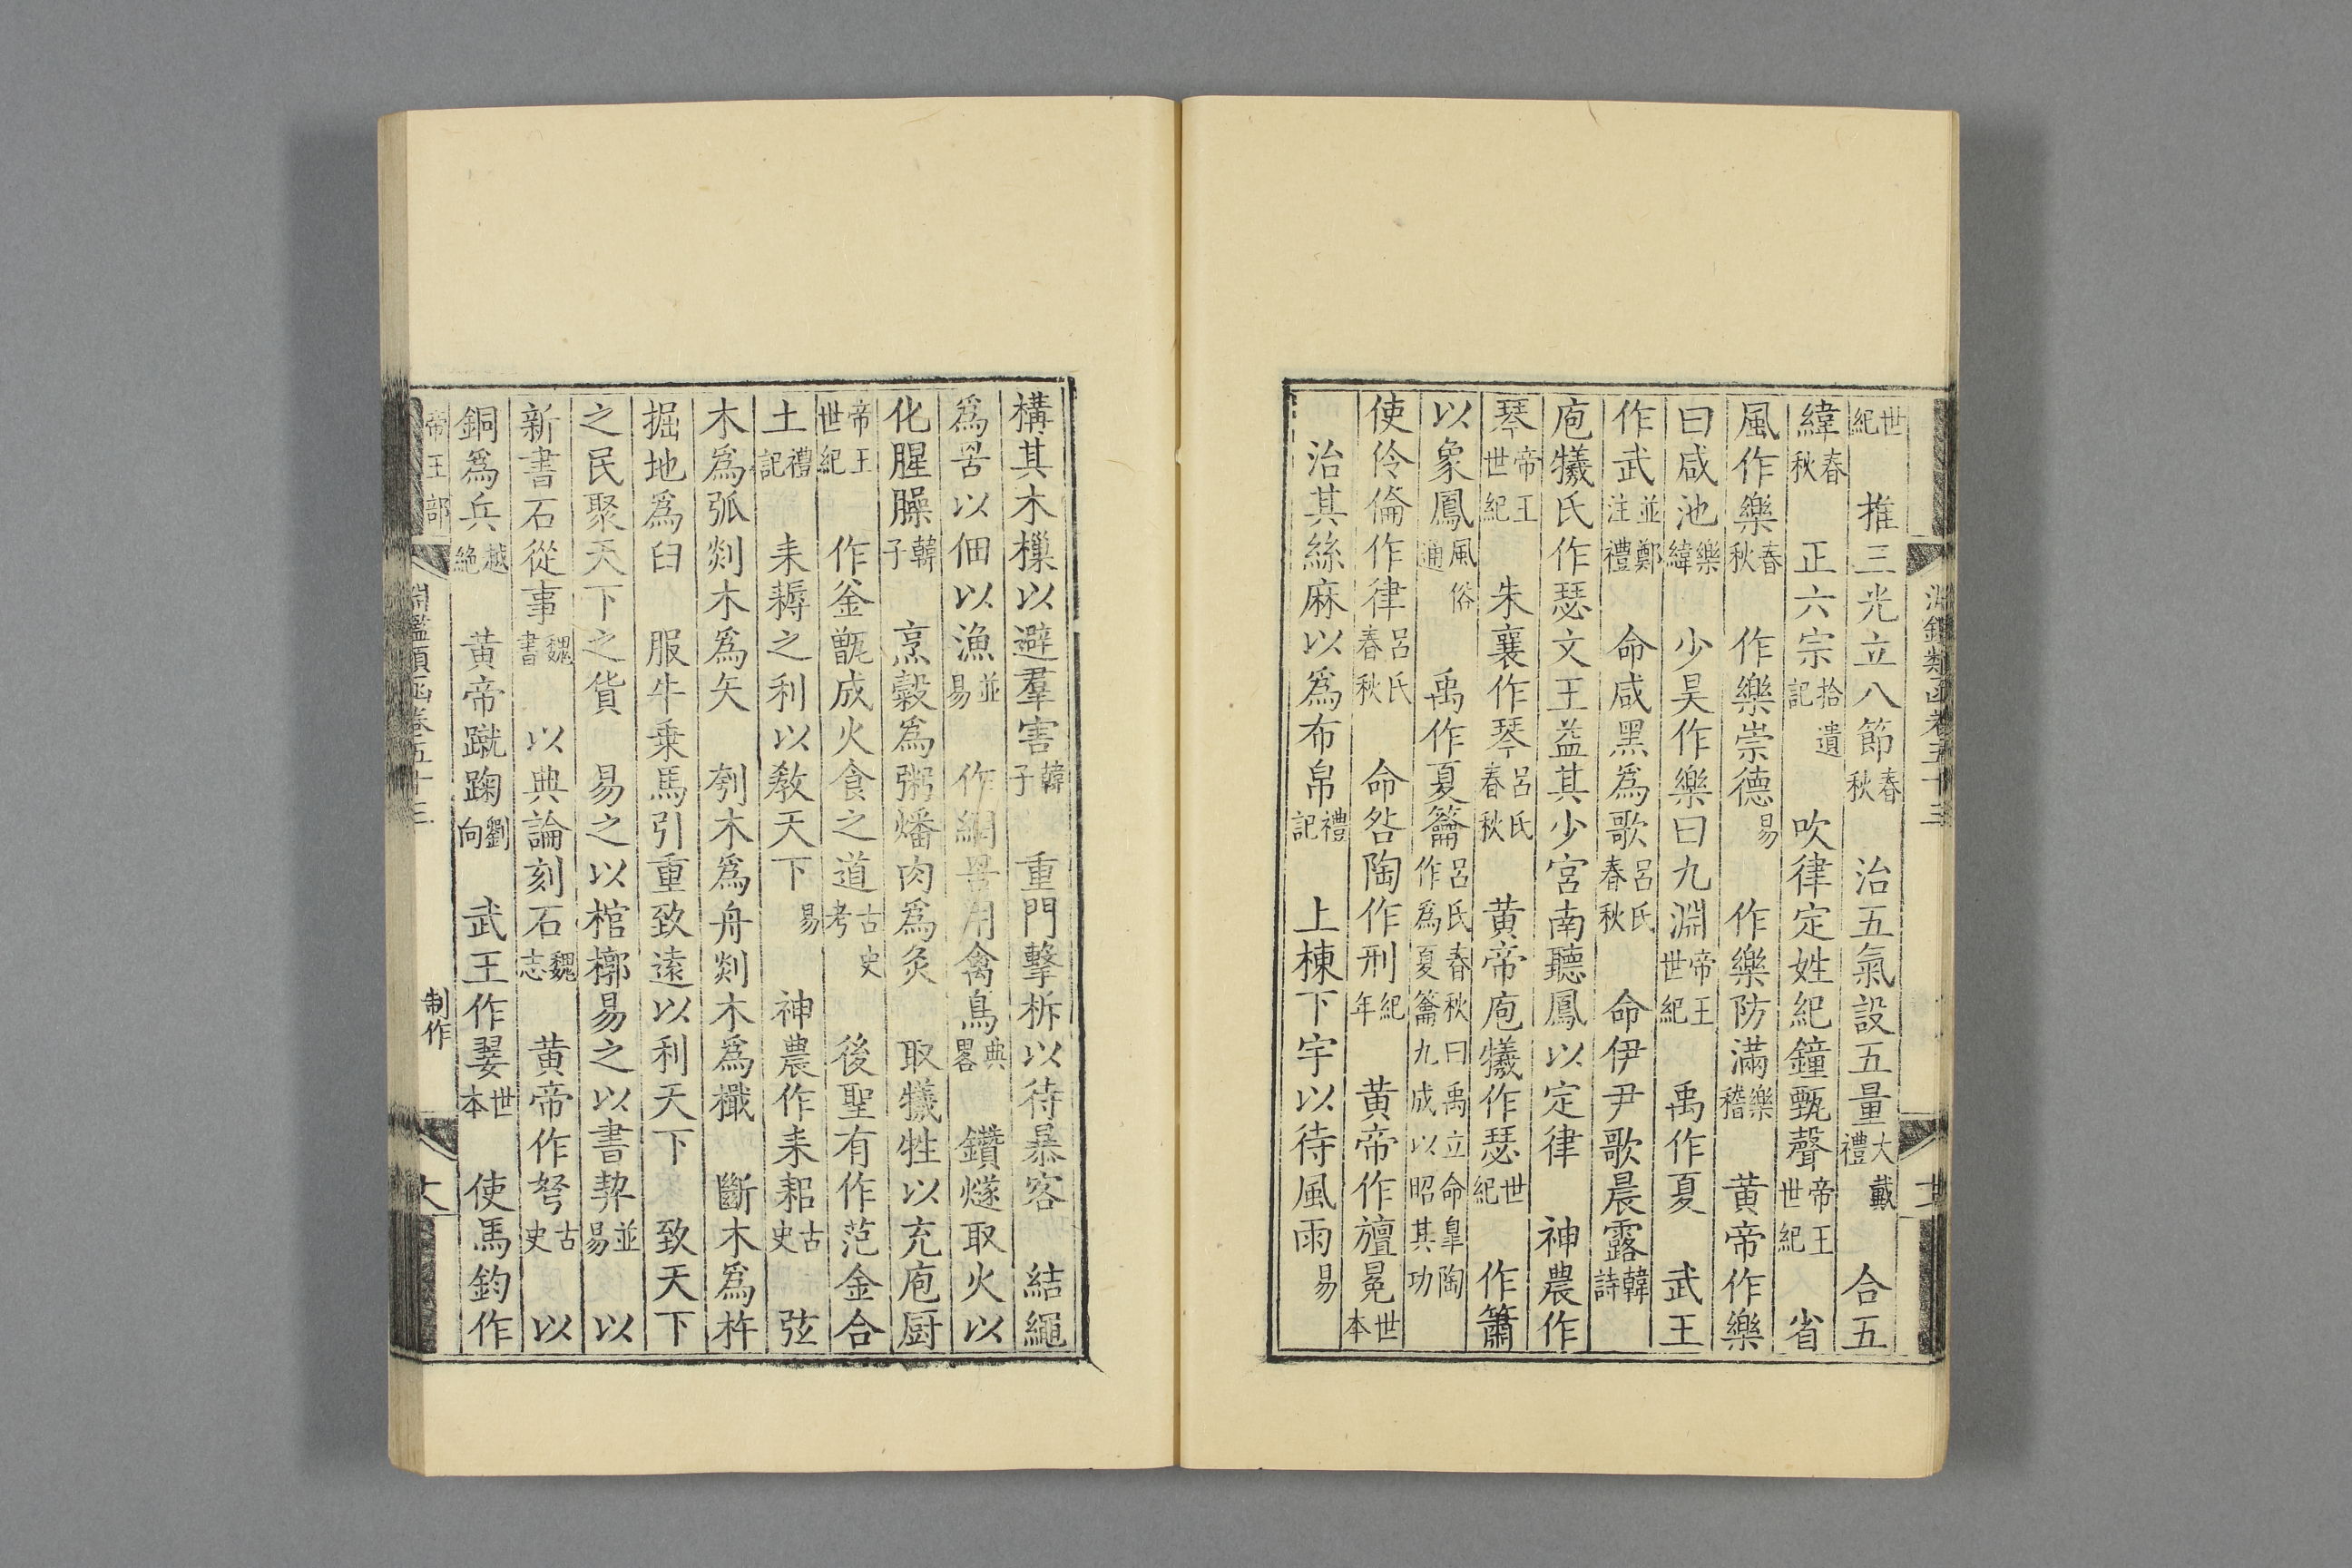 淵鑑類函卷五十三
世紀 推三光立八節春秋 治五氣設五量大戴禮 合五
緯春秋 正六宗拾遺記 吹律定姓紀鐘甄聲帝王世紀 省
風作樂春秋 作樂崇德易 作樂防滿樂稽 黄帝作樂
曰咸池樂緯 少昊作樂曰九淵帝王世紀 禹作夏 武王
作武並鄭注禮 命咸黑爲歌呂氏春秋 命伊尹歌晨露韓詩
庖犧氏作瑟文王益其少宮南聽鳳以定律 神農作
琴帝王世紀 朱襄作琴呂氏春秋 黄帝庖犧作瑟世紀 作簫
以象鳳風俗通 禹作夏籥呂氏春秋曰禹立命皐陶作爲夏籥九成以昭其功
使伶倫作律呂氏春秋 命咎陶作刑紀年 黄帝作旜冕世本
治其絲麻以爲布帛禮記 上棟下宇以待風雨易
構其木樔以避羣害韓子 重門擊柝以待暴客 結繩
爲罟以佃以漁並易 作網罟用禽鳥典畧 鑽燧取火以
化腥臊韓子 烹穀爲粥燔肉爲炙 取犧牲以充庖厨
帝王世紀 作釜甑成火食之道古史考 後聖有作范金合
土禮記 耒耨之利以敎天下易 神農作耒耜古史 弦
木爲弧剡木爲矢 刳木爲舟剡木爲檝 斷木爲杵
掘地爲臼 服牛乘馬引重致遠以利天下 致天下
之民聚天下之貨 易之以棺槨易之以書契並易 以
新書石從事魏書 以典論刻石魏志 黄帝作弩古史 以
銅爲兵越絶 黄帝蹴踘劉向 武王作翣世本 使馬鈞作
帝王部 淵鑑類函卷五十三 制作